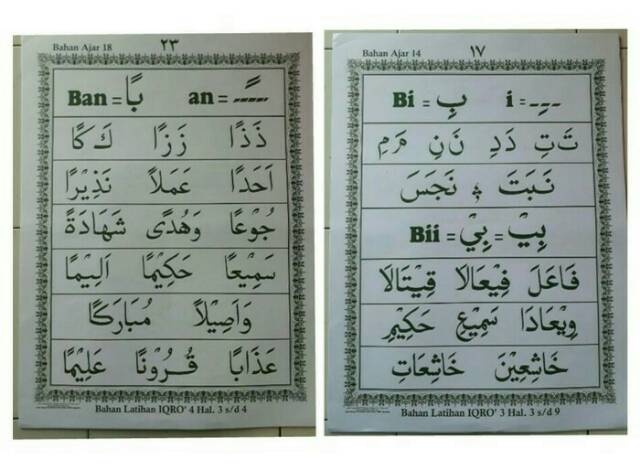 Bahan Ajar 18 ٢٣
Ban = بًا an = ـًـ
ذَذًا زَزًا كَ كًا
اَحَدًا عَمَلاً نَذِيْرًا
جُوْعًا وَهُدًى شَهَادَةً
سَمِيْعًا حَكِيْمًا اَلِيْمًا
وَاَصِيْلاً مُبَارَكًا
عَذَابًا قُرُوْنًا عَلِيْمًا
Bahan Latihan IQRO' 4 Hal. 3 s/d 4
Bahan Ajar 14 ١٧
Bi = بِ i = ـِـ
تَ تِ دَ دِ نَ نِ مَ مِ
نَبَتَ نَجَسَ
Bii = بِيْ = بِيْـ
فَاعَلَ فِيْعَالَا قِيْتَالَا
وِيْعَادَا سَمِيْعِ حَكِيْمِ
خَاشِعِيْنَ خَاشِعَاتِ
Bahan Latihan IQRO' 3 Hal. 3 s/d 9